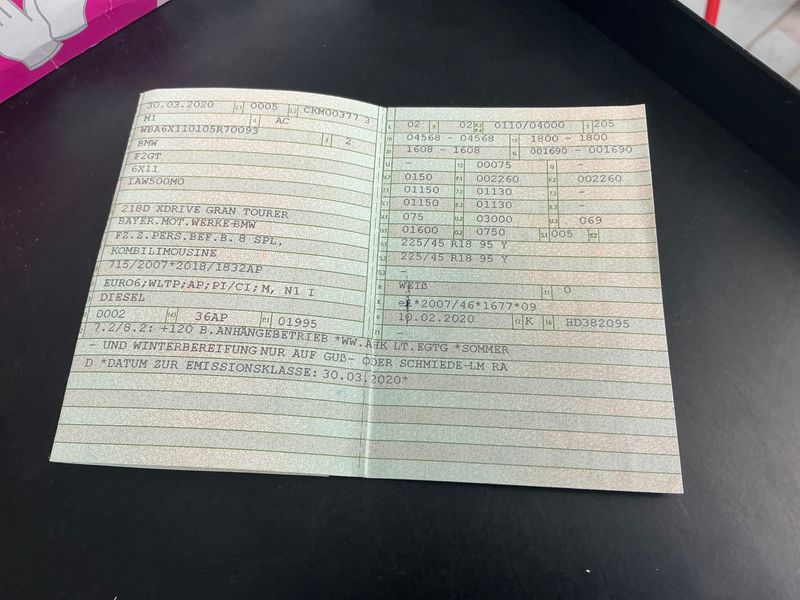 30.03.2020 0005 CKM00377 3
M1 AC
WBA6X110105R70093
BMW 2
F2GT
6X11
IAW500M0
218D XDRIVE GRAN TOURER
BAYER.MOT.WERKE-BMW
FZ.Z.PERS.BEF.B. 8 SPL.
KOMBILIMOUSINE
715/2007*2018/1832AP
EURO6;WLTP;AP;PI/CI; M, N1 I
DIESEL
0002 36AP 01995
02 02 0110/04000 205
04568 - 04568 1800 - 1800
1608 - 1608 001690 - 001690
- 00075 -
0150 002260 002260
01150 01130 -
01150 01130 -
075 03000 069
01600 0750 005
225/45 R18 95 Y
225/45 R18 95 Y
-
WEIß 0
e1*2007/46*1677*09
10.02.2020 K HD382095
-
7.2/8.2: +120 B.ANHÄNGEBETRIEB *WW.AHK LT.EGTG *SOMMER
- UND WINTERBEREIFUNG NUR AUF GUß- ODER SCHMIEDE-LM RA
D *DATUM ZUR EMISSIONSKLASSE: 30.03.2020*